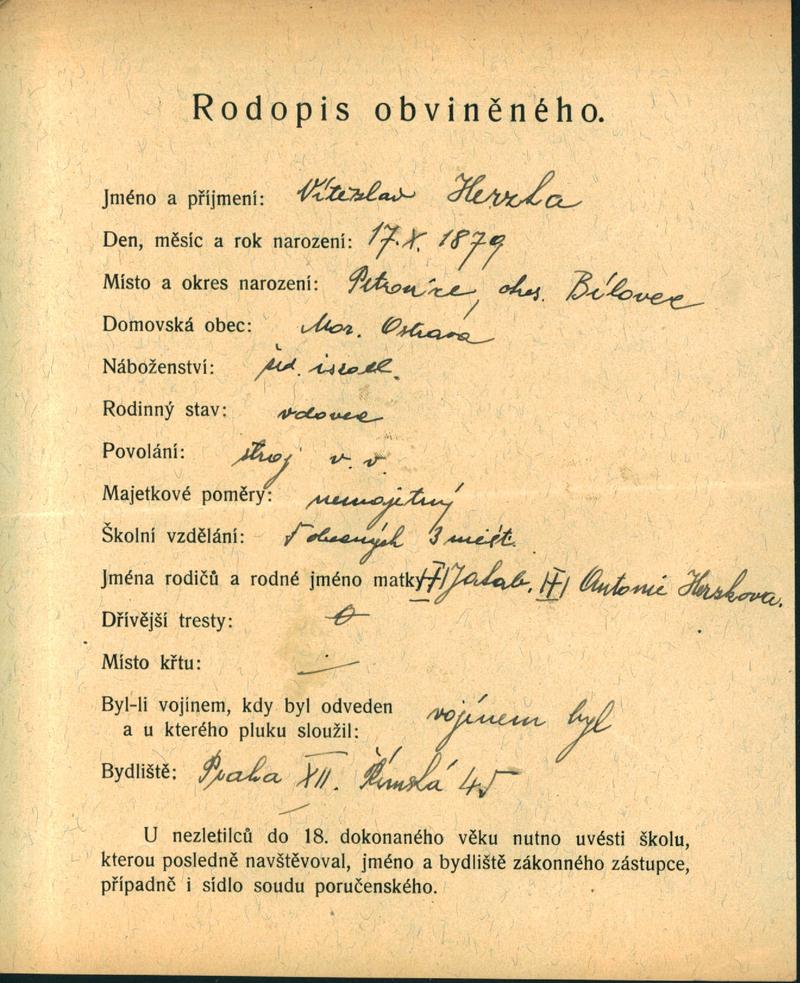 Rodopis obviněného.
Jméno a příjmení: Vítězslav Herzka
Den, měsíc a rok narození: 17.X. 1879
Místo a okres narození: okres. Bílovec
Domovská obec: Mor. Ostrava
Náboženství: israel.
Rodinný stav: vdovec
Povolání: stroj v. v.
Majetkové poměry: nemajetný
Školní vzdělání: 5 obecných 3 mešt.
Jména rodičů a rodné jméno matky: Jakab. Antonie Herzkova.
Dřívější tresty: 0
Místo křtu: ·/·
Byl-li vojínem, kdy byl odveden
a u kterého pluku sloužil: vojínem byl
Bydliště: Praha XII. Římská 45
U nezletilců do 18. dokonaného věku nutno uvésti školu,
kterou posledně navštěvoval, jméno a bydliště zákonného zástupce,
případně i sídlo soudu poručenského.